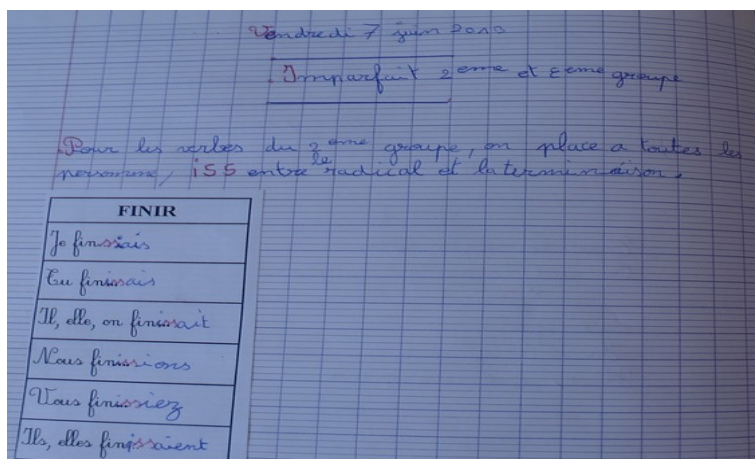 Vendredi 7 juin
Imparfait 2eme et eme groupe
Pour les verbes du 2eme groupe, on place a toutes les
personne, iss entre le radical et la terminaison.
FINIR
Je finissais
Tu finissais
Il, elle, on finissait
Nous finissions
Vous finissiez
Ils, elles finissaient